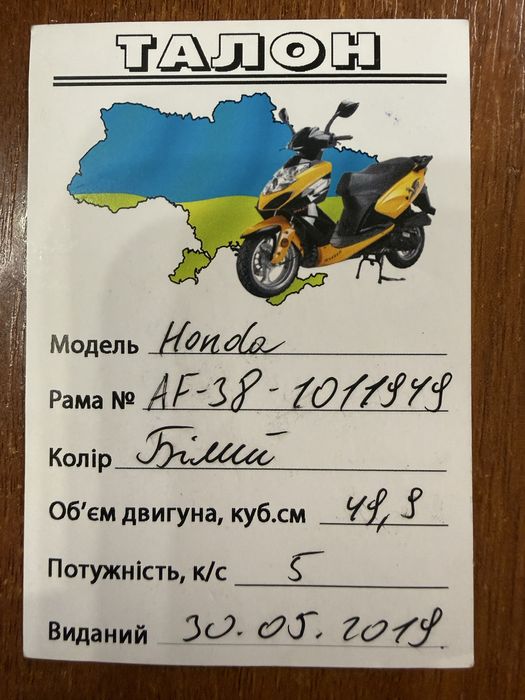 ТАЛОН
Модель Honda
Рама № AF-38-1011949
Колір Білий
Об'єм двигуна, куб.см 49,9
Потужність, к/с 5
Виданий 30.05.2019.